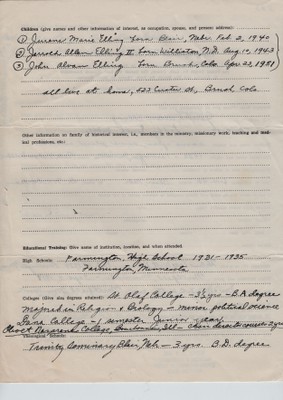 Children (give names and other information of interest, as occupation, spouse, and present address):
① Marie Elling born Blair, Nebr Feb. 2, 1940
② Jerrold Allan Elling II, born Williston, N.D. Aug. 10, 1943
③ John Alvam Elling born Brush, Colo. Apr. 23, 1951
all live at home, 523 Curtis St., Brush Colo
(Give information on family of historical interest, i.e., members in the ministry, missionary work, teaching and medical professions, etc.)
Educational Training: Give name of institution, location, and when attended.
High Schools: Farmington, High School 1931-1935
Farmington, Minnesota
Colleges (Give also degrees attained): St. Olaf College - 3½ yrs - B.A. degree
majored in Religion & Biology - minor political science
Dana College - 1 semester Junior year
Olivet Nazarene College, Ill -
Theological Schools:
Trinity Seminary Blair, Neb - 3 yrs. B.D. degree